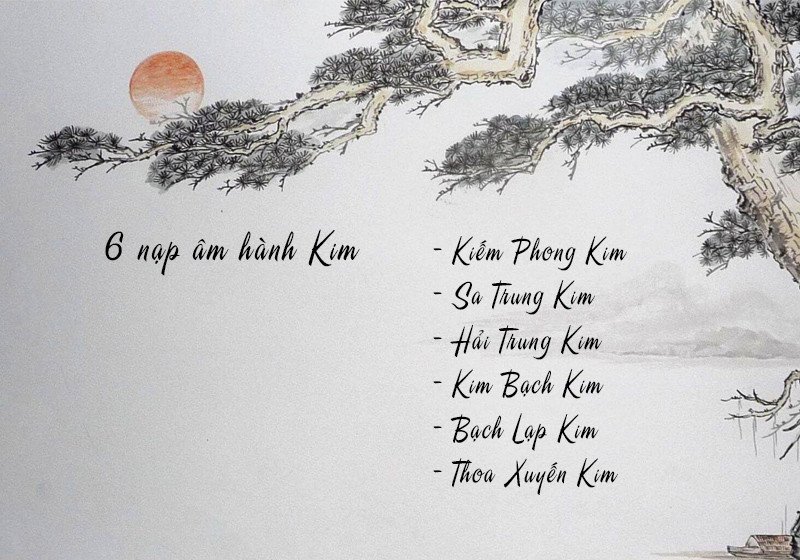 6 nạp âm hành Kim
- Kiếm Phong Kim
- Sa Trung Kim
- Hải Trung Kim
- Kim Bạch Kim
- Bạch Lạp Kim
- Thoa Xuyến Kim